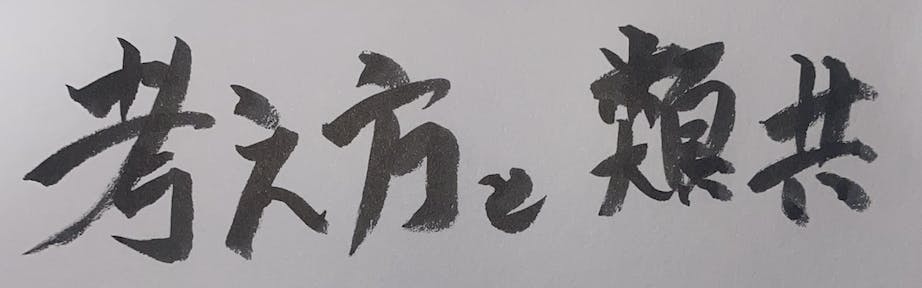 考え方と 類共